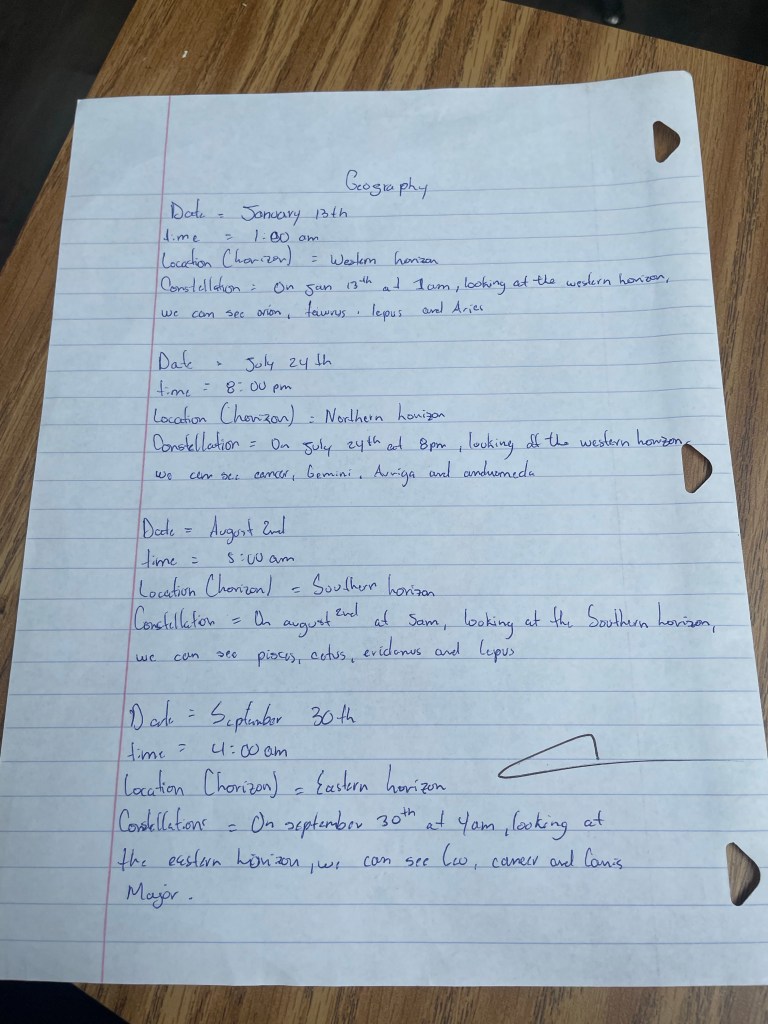 Geography
Date = January 13th
time = 1:00 am
Location (horizon) = Western horizon
Constellation = On Jan 13th at 1am, looking at the western horizon,
we can see orion, taurus, lepus and Aries
Date = July 24th
time = 8:00 pm
Location (horizon) = Northern horizon
Constellation = On July 24th at 8pm, looking at the western horizon,
we can see cancer, Gemini, Auriga and andromeda
Date = August 2nd
time = 5:00 am
Location (horizon) = Southern horizon
Constellation = On august 2nd at 5am, looking at the Southern horizon,
we can see pisces, cetus, eridanus and lepus
Date = September 30th
time = 4:00 am
Location (horizon) = Eastern horizon
Constellations = On september 30th at 4am, looking at
the eastern horizon, we can see Leo, cancer and Canis
Major.